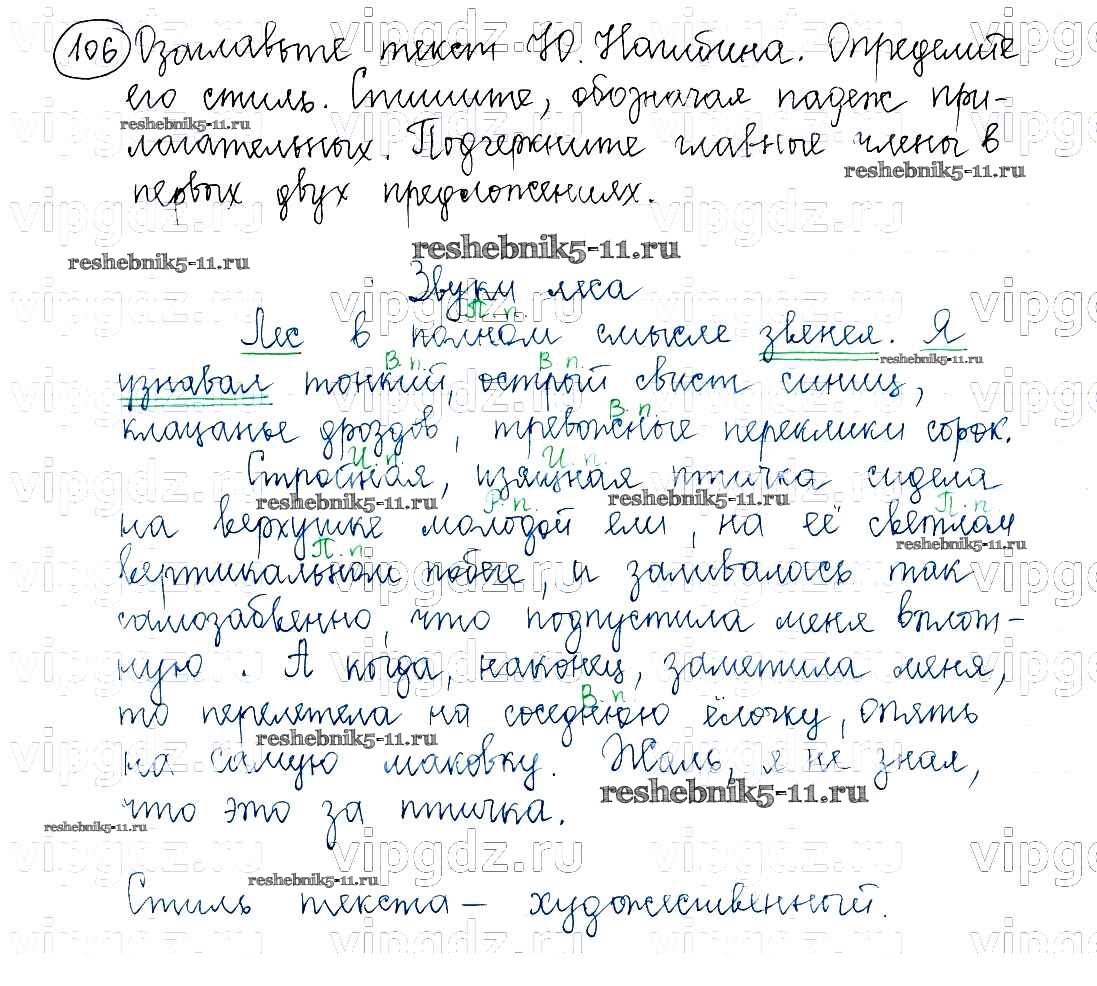 106 Озаглавьте текст Ю. Нагибина. Определите
его стиль. Спишите, обозначая падеж при-
лагательных. Подчеркните главные члены в
первых двух предложениях.
Звуки леса
П. п.
Лес в полном смысле звенел. Я
В. п. В. п.
узнавал тонкий, острый свист синиц,
В. п.
клацанье дроздов, тревожные переклики сорок.
И. п. И. п.
Стройная, изящная птичка сидела
Р. п. П. п.
на верхушке молодой ели, на её светлом
П. п.
вертикальном побеге, и заливалась так
самозабвенно, что подпустила меня вплот-
ную. А когда, наконец, заметила меня,
В. п.
то перелетела на соседнюю ёлочку, опять
на самую маковку. Жаль, я не знал,
что это за птичка.
Стиль текста – художественный.
vipgdz.ru
reshebnik5-11.ru